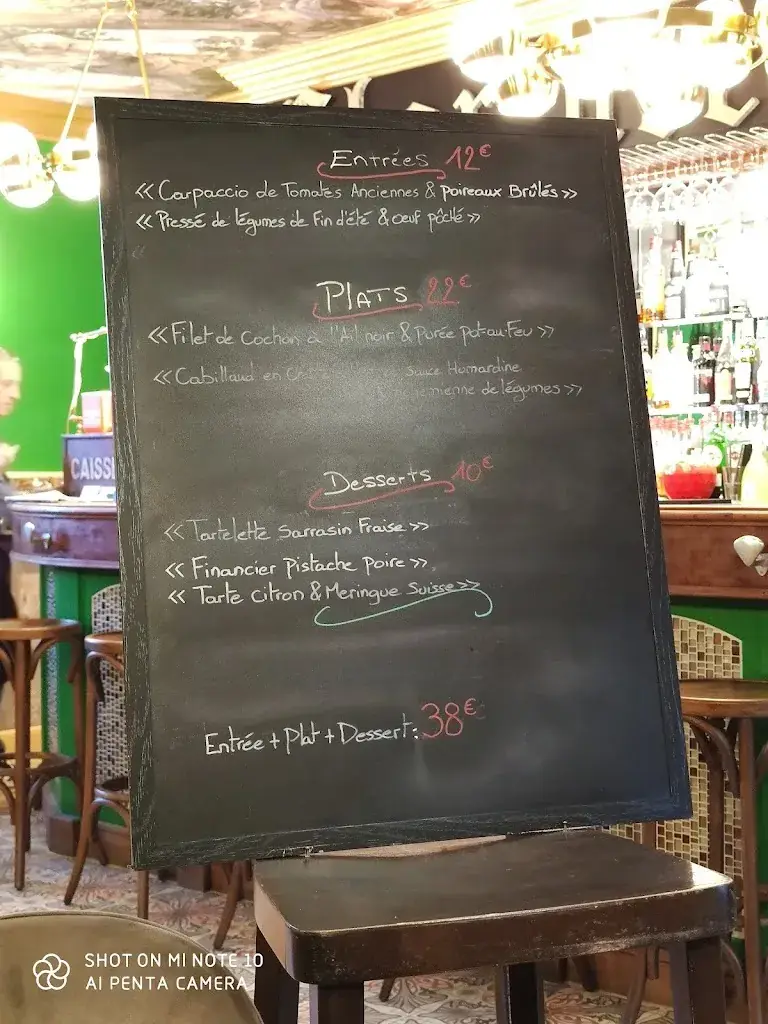 Entrées 12€
<< Carpaccio de Tomates Anciennes & Poireaux Brûlés >>
<< Pressé de légumes de Fin d'été & œuf pôché >>
Plats 22€
<< Filet de Cochon à l'Ail noir & Purée Pot-au-Feu >>
<< Cabillaud en Sauce Homardine
de légumes >>
Desserts 10€
<< Tartelette Sarrasin Fraise >>
<< Financier Pistache Poire >>
<< Tarte Citron & Meringue Suisse >>
Entrée + Plat + Dessert : 38€
CAISS
SHOT ON MI NOTE 10
AI PENTA CAMERA